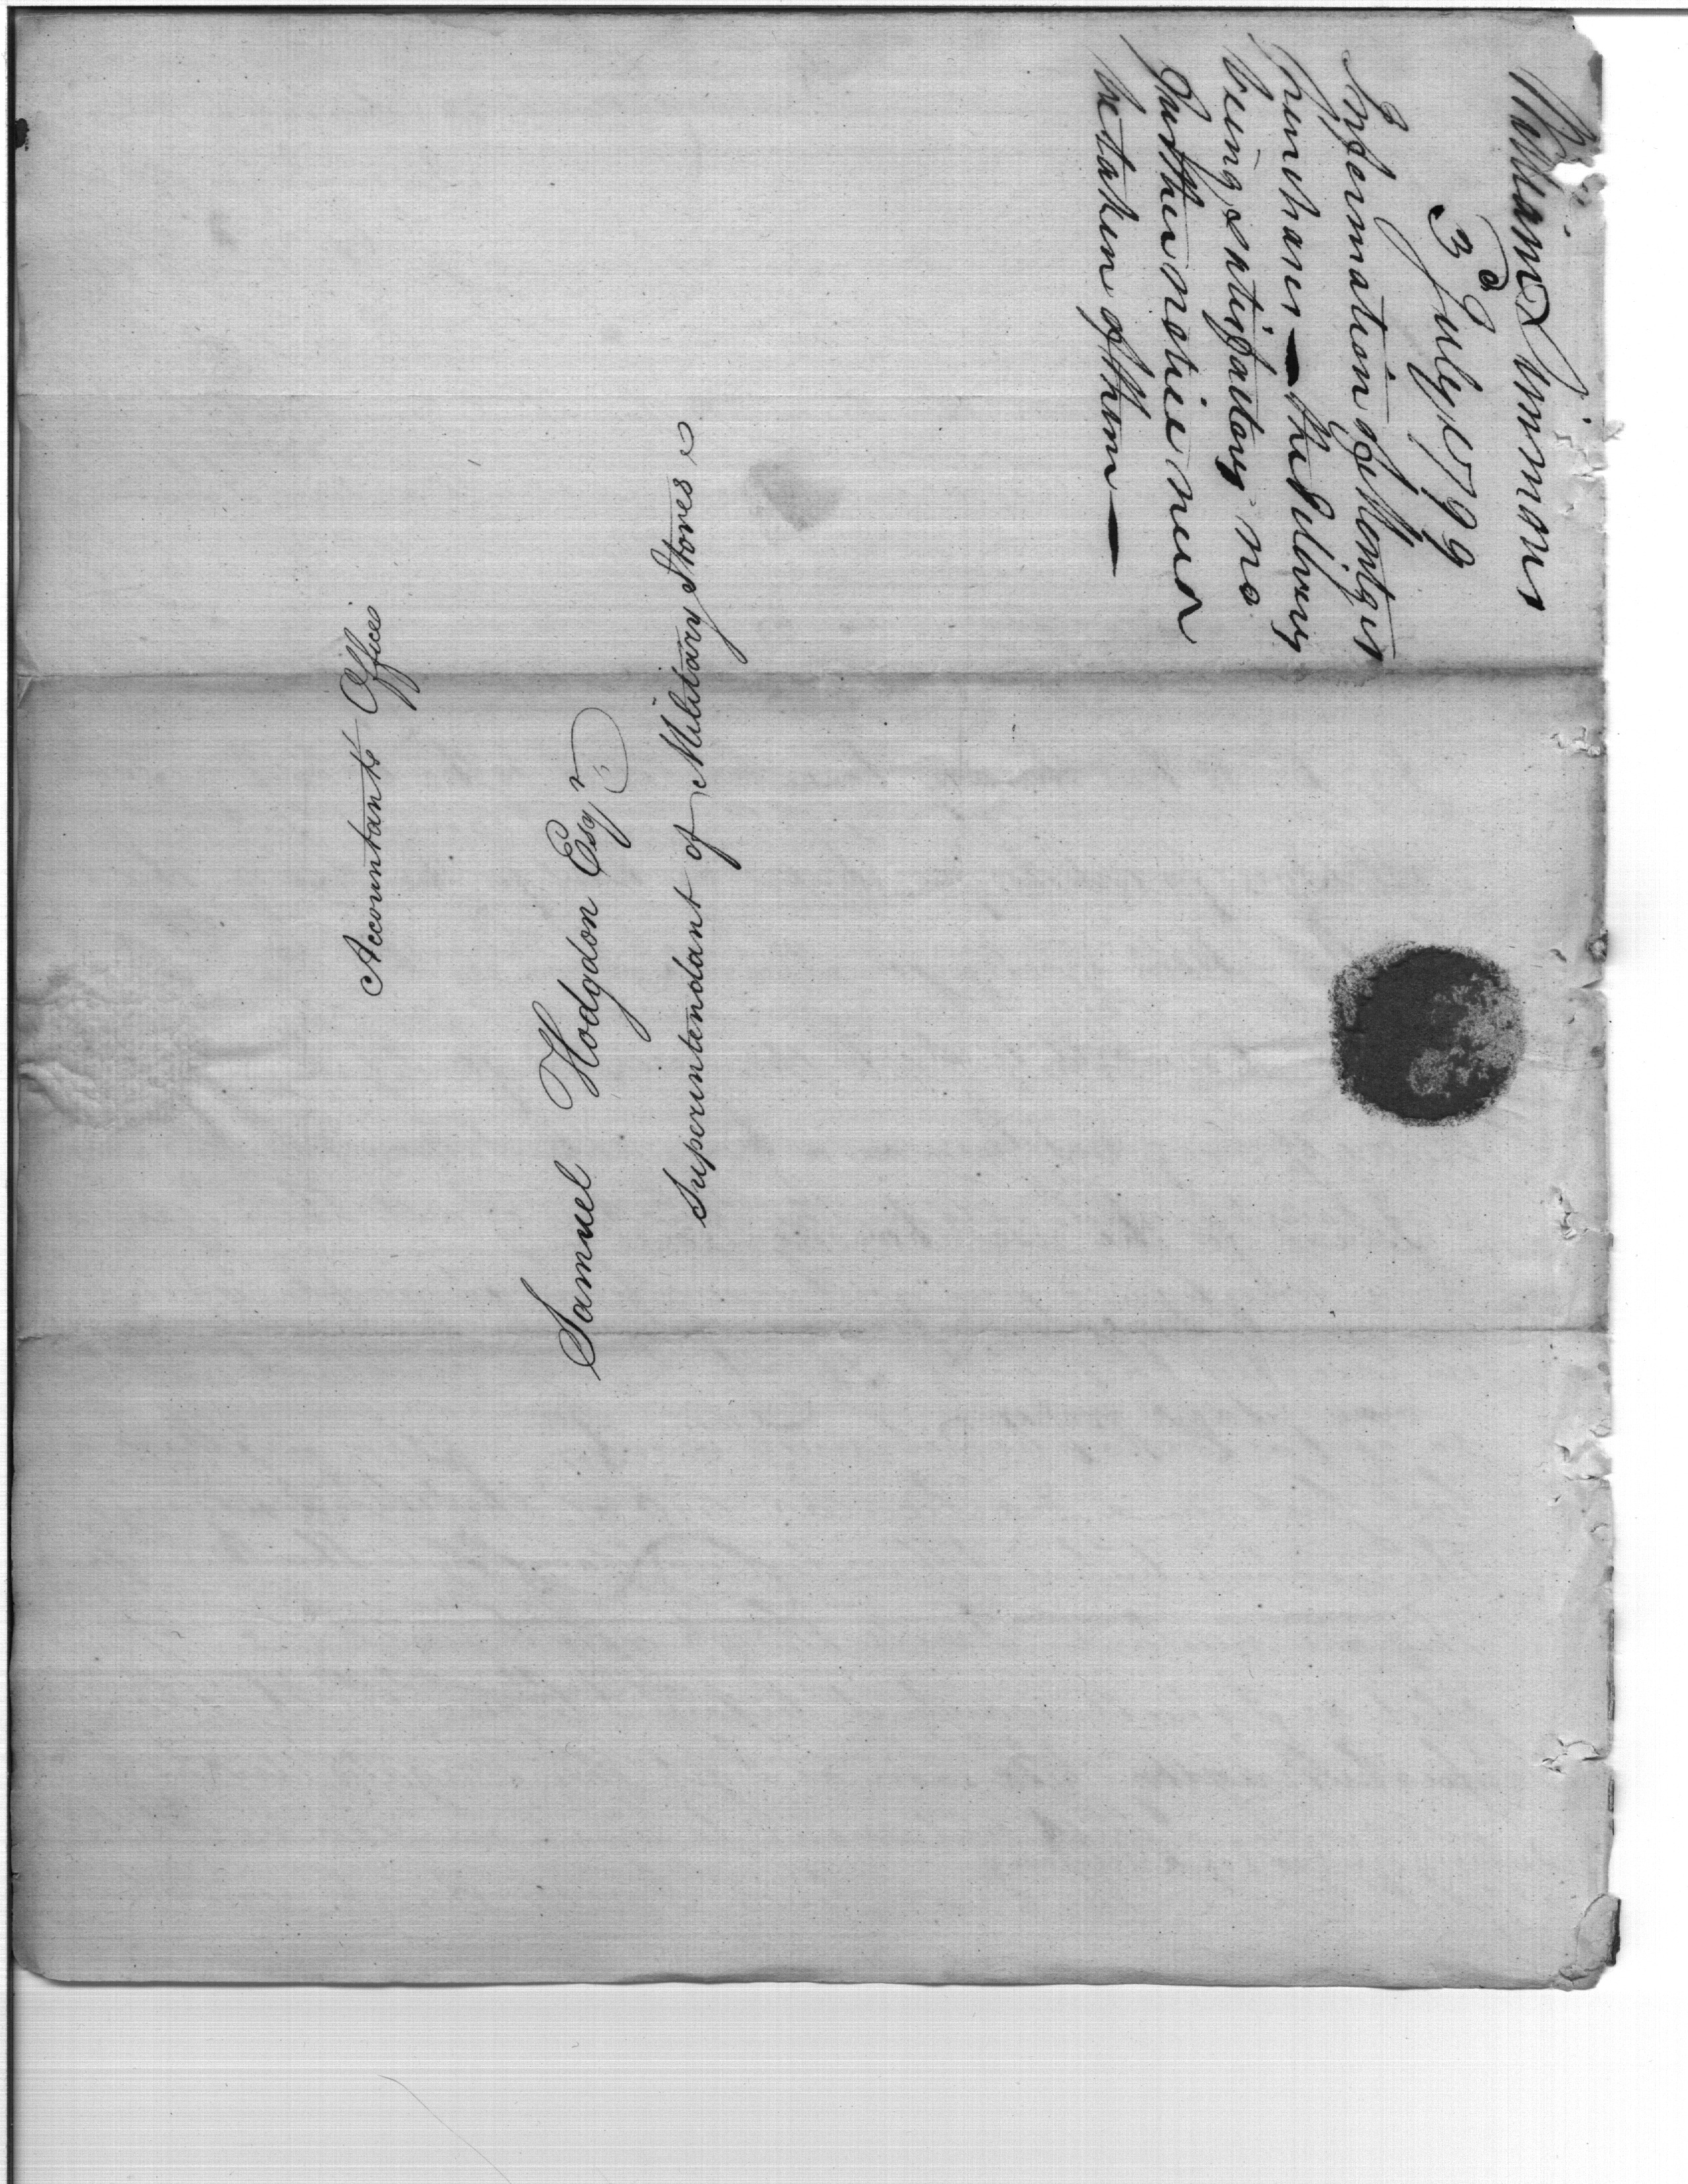 Accountants Office
Samuel Hodgdon Esqr
Superintendant of Military Stores
William Simmons
3d July 1799
Information of Montgis
purchases — the delivery
being satisfactory no
further notice need
be taken of them —